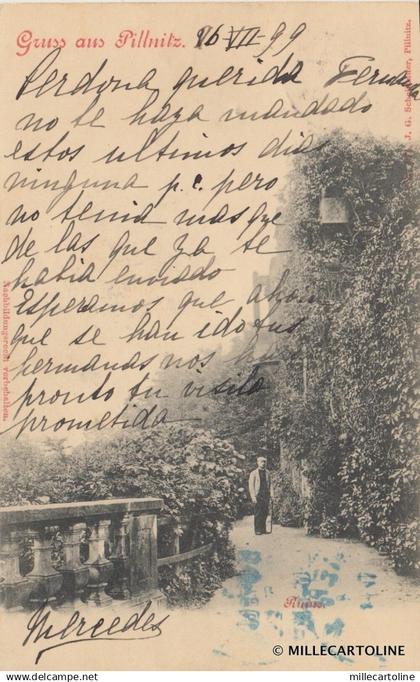 Gruss aus Pillnitz. 16 VII - 99
Perdona querida Fernanda
no te haya mandado
estos ultimos dias
ninguna p.c. pero
no tenia mas que
de las que ya te
habia enviado
Esperamos que ahora
que se han ido tus
hermanas nos hagas
pronto tu visita
prometida
Mercedes
Ruine.
J. G. Pillnitz.
Nachbildungsrecht vorbehalten.
© MILLECARTOLINE